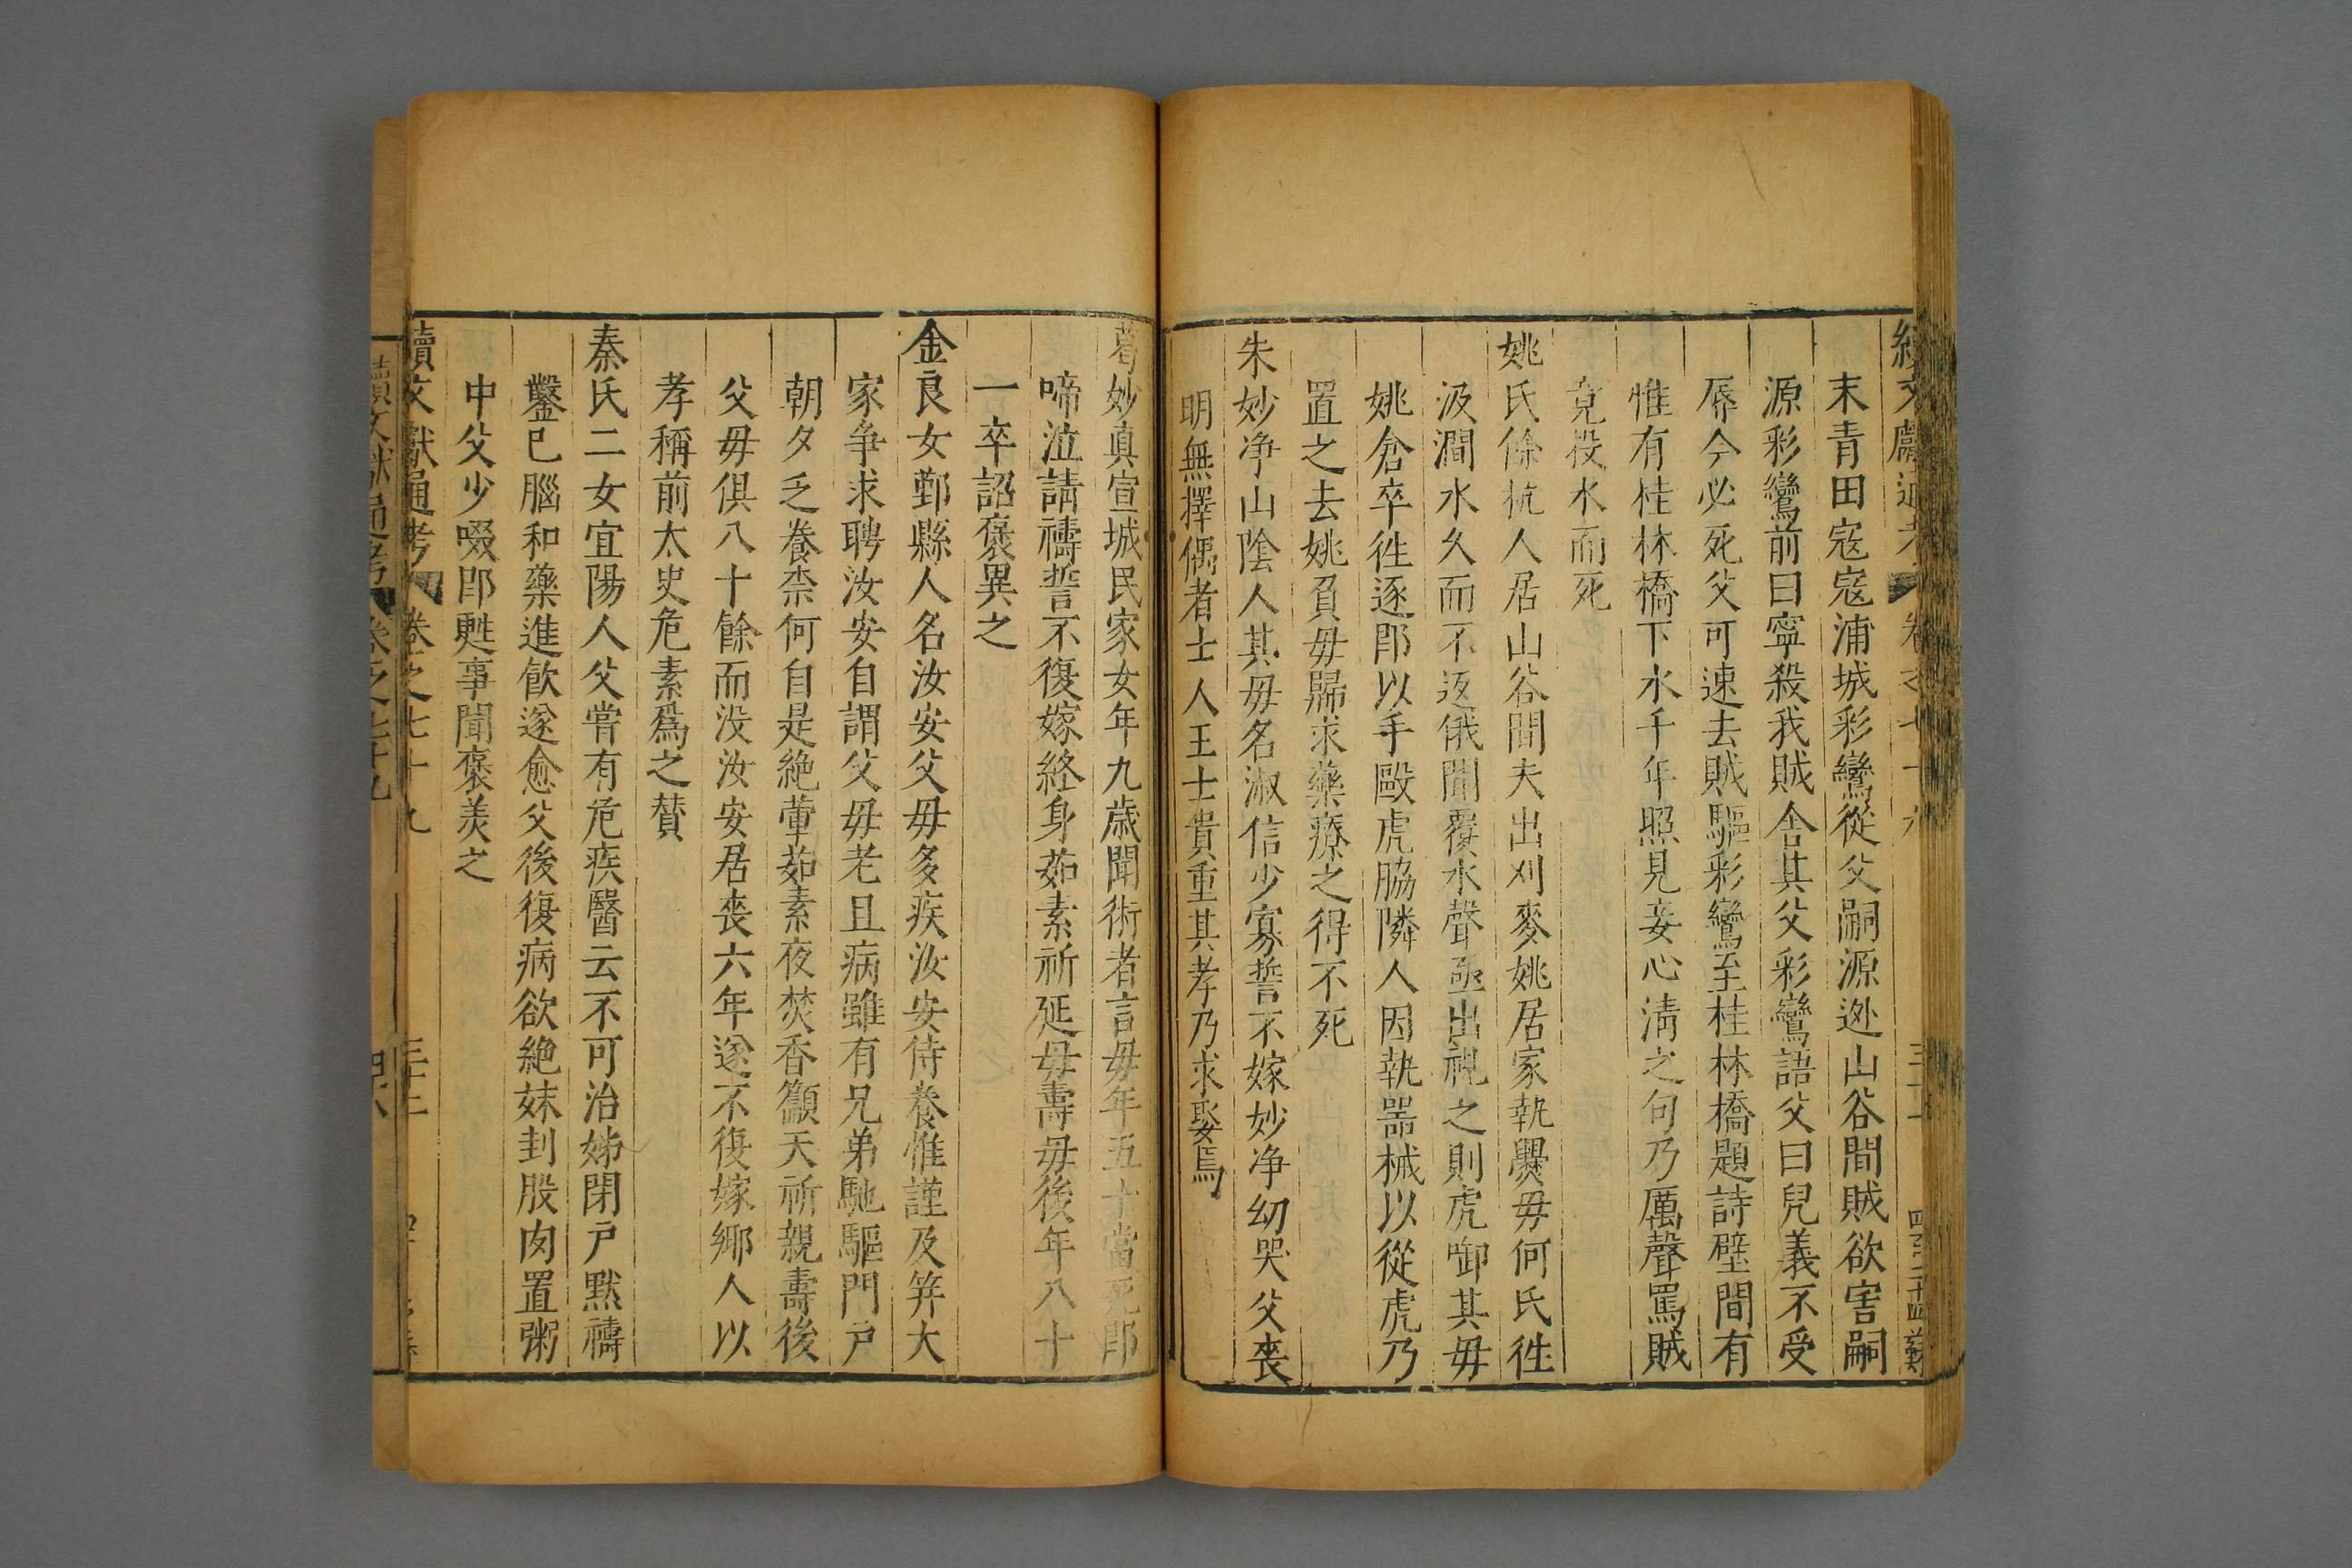 續文獻通考 卷之七十九
末青田寇寇浦城彩鸞從父嗣源迯山谷間賊欲害嗣
源彩鸞前曰寧殺我賊舍其父彩鸞語父曰兒義不受
辱今必死父可速去賊驅彩鸞至桂林橋題詩壁間有
惟有桂林橋下水千年照見妾心淸之句乃厲聲罵賊
竟投水而死
姚氏餘杭人居山谷間夫出刈麥姚居家執爨毋何氏徃
汲澗水久而不返俄聞覆水聲亟出視之則虎啣其毋
姚倉卒徃逐卽以手毆虎脇隣人因執噐械以從虎乃
置之去姚負毋歸求藥療之得不死
朱妙淨山陰人其毋名淑信少寡誓不嫁妙淨幼哭父喪
明無擇偶者士人王士貴重其孝乃求娶焉
葛妙眞宣城民家女年九歲聞術者言毋年五十當死卽
啼泣請禱誓不復嫁終身茹素祈延毋壽毋後年八十
一卒詔褒異之
金良女鄞縣人名汝安父毋多疾汝安侍養惟謹及笄大
家爭求聘汝安自謂父毋老且病雖有兄弟馳驅門戸
朝夕乏養柰何自是絶葷茹素夜焚香籲天祈親壽後
父毋俱八十餘而没汝安居喪六年遂不復嫁鄉人以
孝稱前太史危素爲之賛
秦氏二女宜陽人父嘗有危疾醫云不可治姊閉戸黙禱
鑿已腦和藥進飮遂愈父後復病欲絶妹刲股肉置粥
中父少啜卽甦事聞褒美之
續文獻通考 卷之七十九 三十二
續文獻通考 卷之七十九